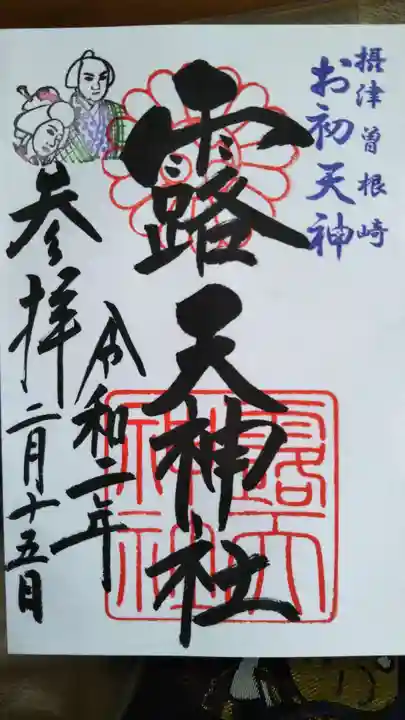 摂津曽根崎
お初天神
露天神社
令和二年
参拝
二月十五日
露天
神社